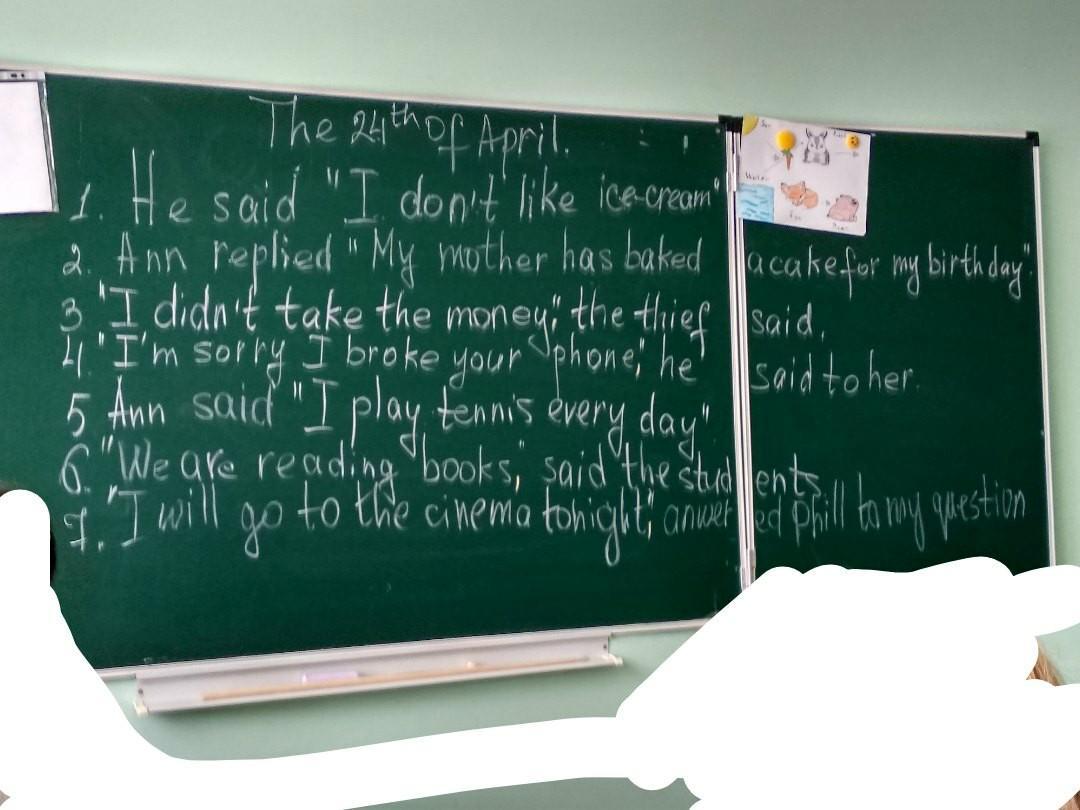 The 24th of April.
1. He said "I don't like ice-cream"
2. Ann replied "My mother has baked a cake for my birthday".
3 "I didn't take the money," the thief said.
4 "I'm sorry I broke your phone", he said to her.
5 Ann said "I play tennis every day"
6. "We are reading books," said the students
7. "I will go to the cinema tonight", anwered Phill to my question